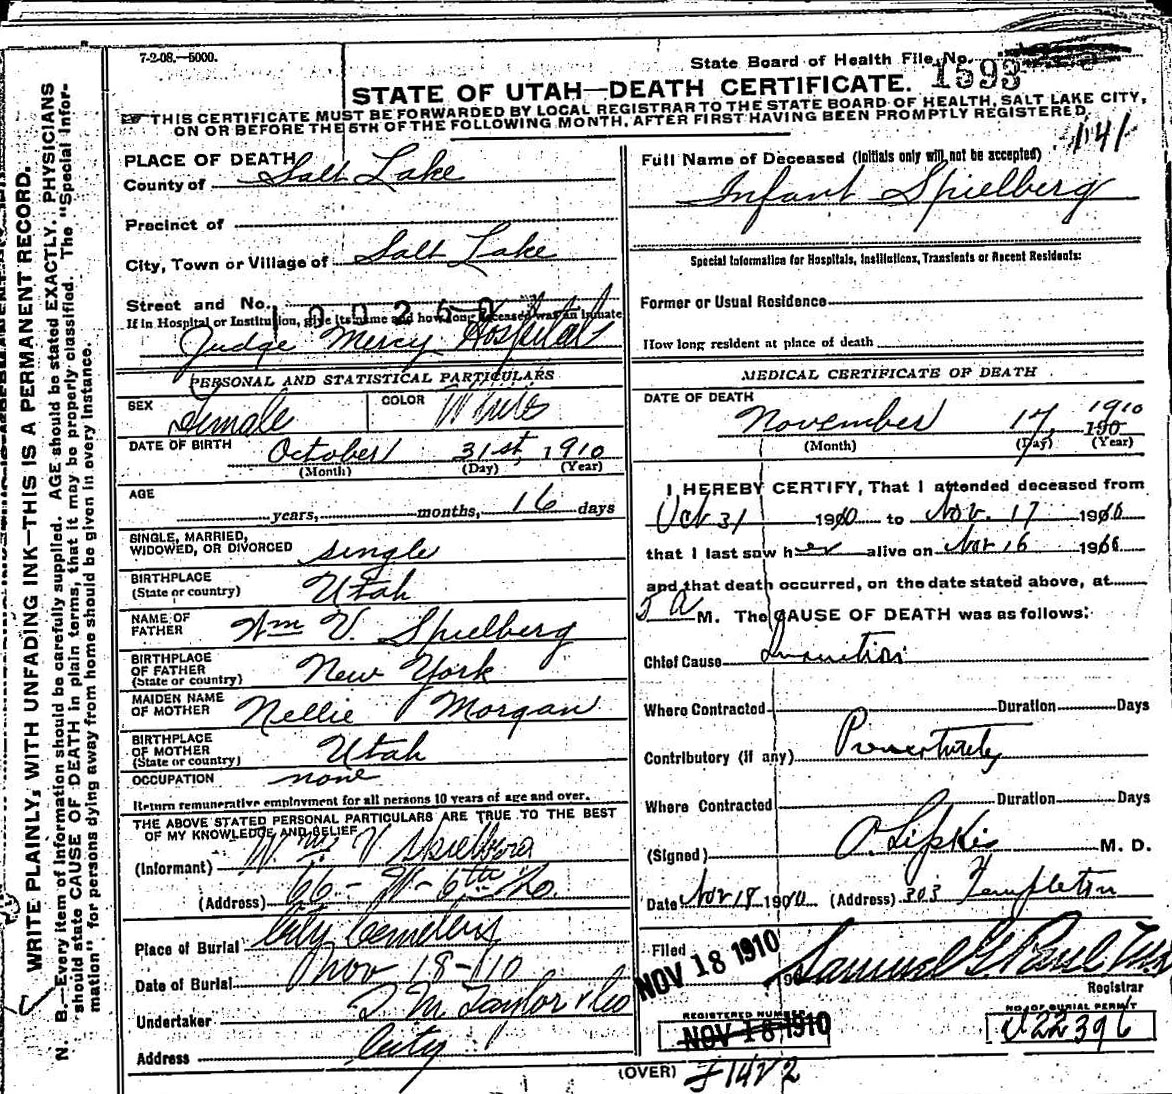 7-2-08.—5000.
State Board of Health File No. 1593
STATE OF UTAH—DEATH CERTIFICATE.
THIS CERTIFICATE MUST BE FORWARDED BY LOCAL REGISTRAR TO THE STATE BOARD OF HEALTH, SALT LAKE CITY,
ON OR BEFORE THE 5TH OF THE FOLLOWING MONTH, AFTER FIRST HAVING BEEN PROMPTLY REGISTERED.
141
WRITE PLAINLY, WITH UNFADING INK—THIS IS A PERMANENT RECORD.
N. B.—Every item of information should be carefully supplied. AGE should be stated EXACTLY. PHYSICIANS
should state CAUSE OF DEATH in plain terms, that it may be properly classified. The "Special Infor-
mation" for persons dying away from home should be given in every instance.
PLACE OF DEATH
County of Salt Lake
Precinct of
City, Town or Village of Salt Lake
Street and No.
If in Hospital or Institution, give its name and how long deceased was an inmate
Judge Mercy Hospital
PERSONAL AND STATISTICAL PARTICULARS
SEX Female COLOR White
DATE OF BIRTH October 31st, 1910
(Month) (Day) (Year)
AGE
years, months, 16 days
SINGLE, MARRIED,
WIDOWED, OR DIVORCED single
BIRTHPLACE
(State or country) Utah
NAME OF
FATHER Wm V. Spielberg
BIRTHPLACE
OF FATHER
(State or country) New York
MAIDEN NAME
OF MOTHER Nellie Morgan
BIRTHPLACE
OF MOTHER
(State or country) Utah
OCCUPATION none
Return remunerative employment for all persons 10 years of age and over.
THE ABOVE STATED PERSONAL PARTICULARS ARE TRUE TO THE BEST
OF MY KNOWLEDGE AND BELIEF
(Informant) Wm V Spielberg
(Address) 66 - W - 6th So.
Place of Burial City Cemetery
Date of Burial Nov 18-10
Undertaker S. M. Taylor & Co
Address City
Full Name of Deceased (Initials only will not be accepted)
Infant Spielberg
Special Information for Hospitals, Institutions, Transients or Recent Residents:
Former or Usual Residence
How long resident at place of death
MEDICAL CERTIFICATE OF DEATH
DATE OF DEATH
November 17, 1910
(Month) (Day) (Year)
I HEREBY CERTIFY, That I attended deceased from
Oct 31 1910 to Nov. 17 1910
that I last saw her alive on Nov 16 1910
and that death occurred, on the date stated above, at
5 A M. The CAUSE OF DEATH was as follows:
Chief Cause Inanition
Where Contracted Duration Days
Contributory (if any) Prematurity
Where Contracted Duration Days
(Signed) O. Lipkis M. D.
Date Nov 18 1910 (Address) 303 Templeton
Filed NOV 18 1910
Registrar
REGISTERED NUMBER
NOV 18 1910
NO. OF BURIAL PERMIT
(OVER)